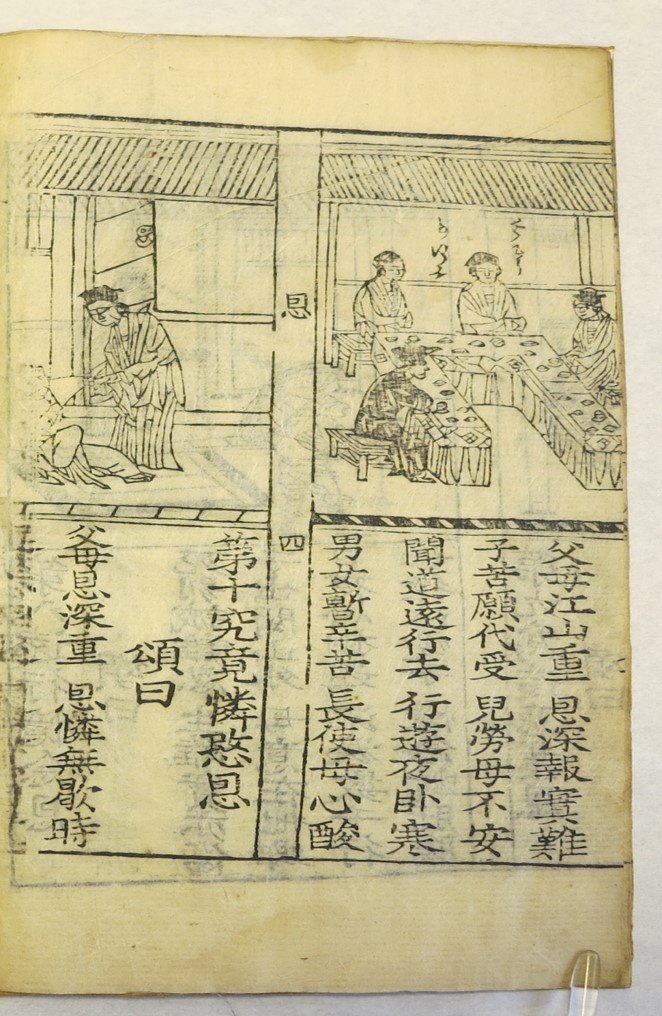 父母江山重 恩深報實難
子苦願代受 兒勞母不安
聞道遠行去 行遊夜卧寒
男女暫辛苦 長使母心酸
恩
四
第十究竟憐愍恩
頌曰
父母恩深重 恩憐無歇時